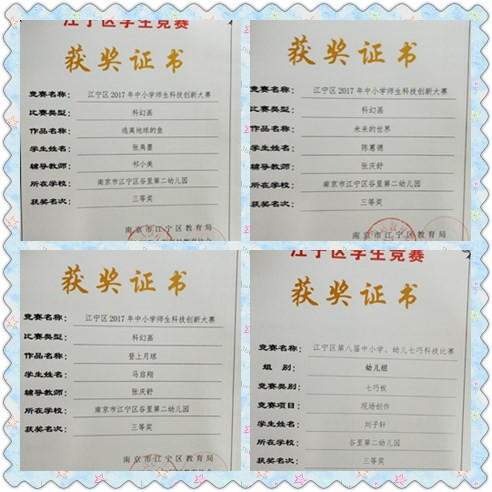 江宁区学生竞赛
获奖证书
竞赛名称： 江宁区2017年中小学师生科技创新大赛
比赛类型： 科幻画
作品名称： 逃离地球的鱼
学生姓名： 张禹墨
辅导教师： 祁小美
所在学校： 南京市江宁区谷里第二幼儿园
获奖名次： 三等奖
南京市江宁区教育局
获奖证书
竞赛名称： 江宁区2017年中小学师生科技创新大赛
比赛类型： 科幻画
作品名称： 未来的世界
学生姓名： 陈蕙德
辅导教师： 张庆舒
所在学校： 南京市江宁区谷里第二幼儿园
获奖名次： 三等奖
南京市江宁区教育局
获奖证书
竞赛名称： 江宁区2017年中小学师生科技创新大赛
比赛类型： 科幻画
作品名称： 登上月球
学生姓名： 马启翔
辅导教师： 张庆舒
所在学校： 南京市江宁区谷里第二幼儿园
获奖名次： 三等奖
南京市江宁区教育局
江宁区学生竞赛
获奖证书
竞赛名称： 江宁区第八届中小学、幼儿七巧科技比赛
组 别： 幼儿组
竞赛类别： 七巧板
竞赛项目： 现场创作
学生姓名： 刘子轩
所在学校： 谷里第二幼儿园
获奖名次： 三等奖